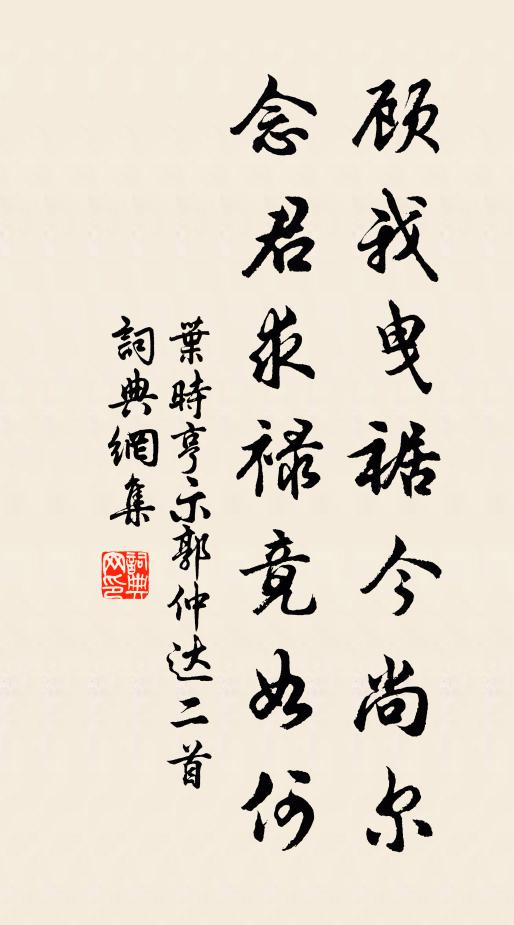 顾我曳裾今尚尔
念君求禄竟如何
葉時亨示郭仲达二首
詞典網集
詞典网印